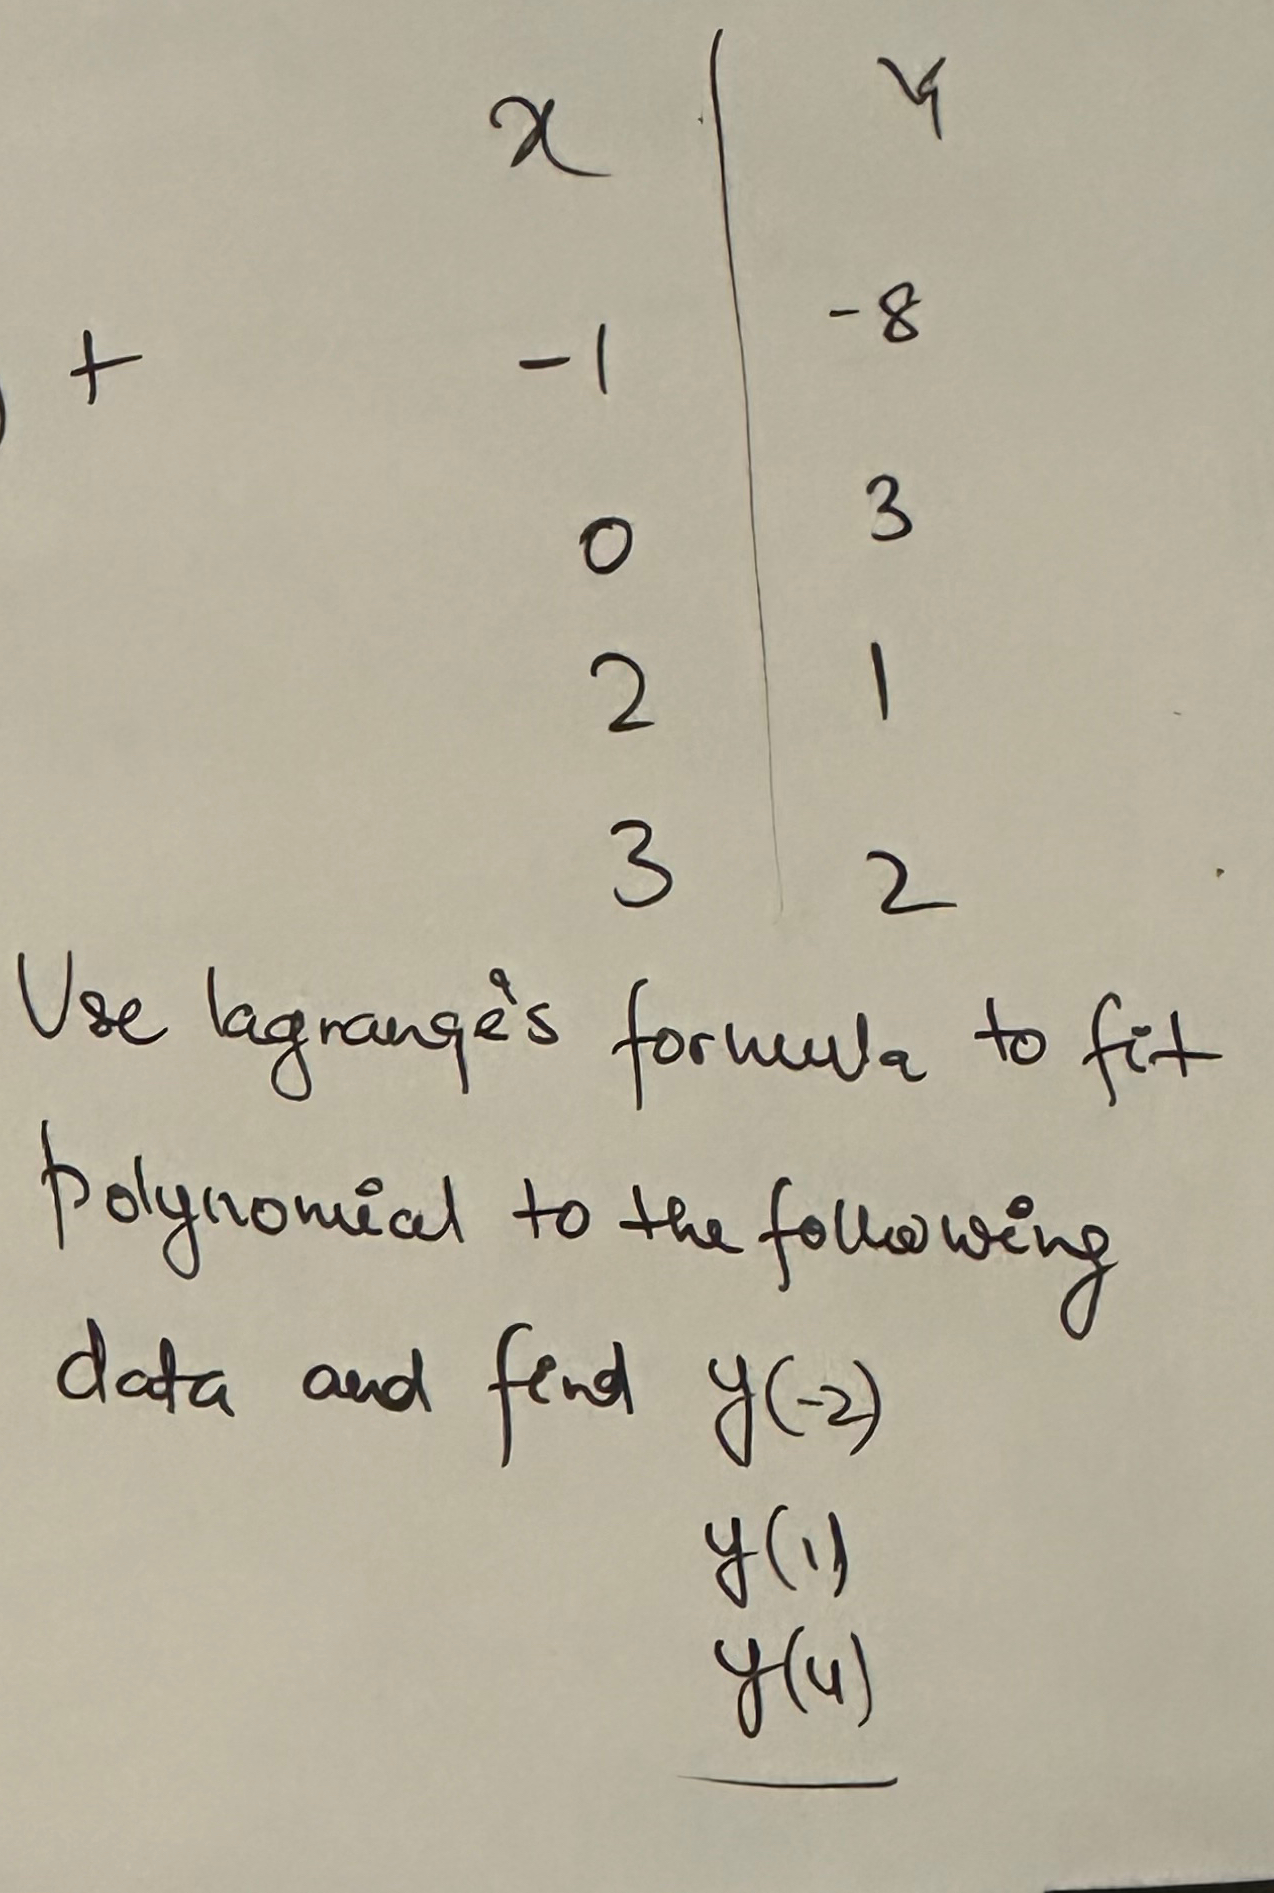 x y
+ -1 -8
0 3
2 1
3 2
Use lagrange's formula to fit
polynomial to the following
data and find y(-2)
y(1)
y(4)